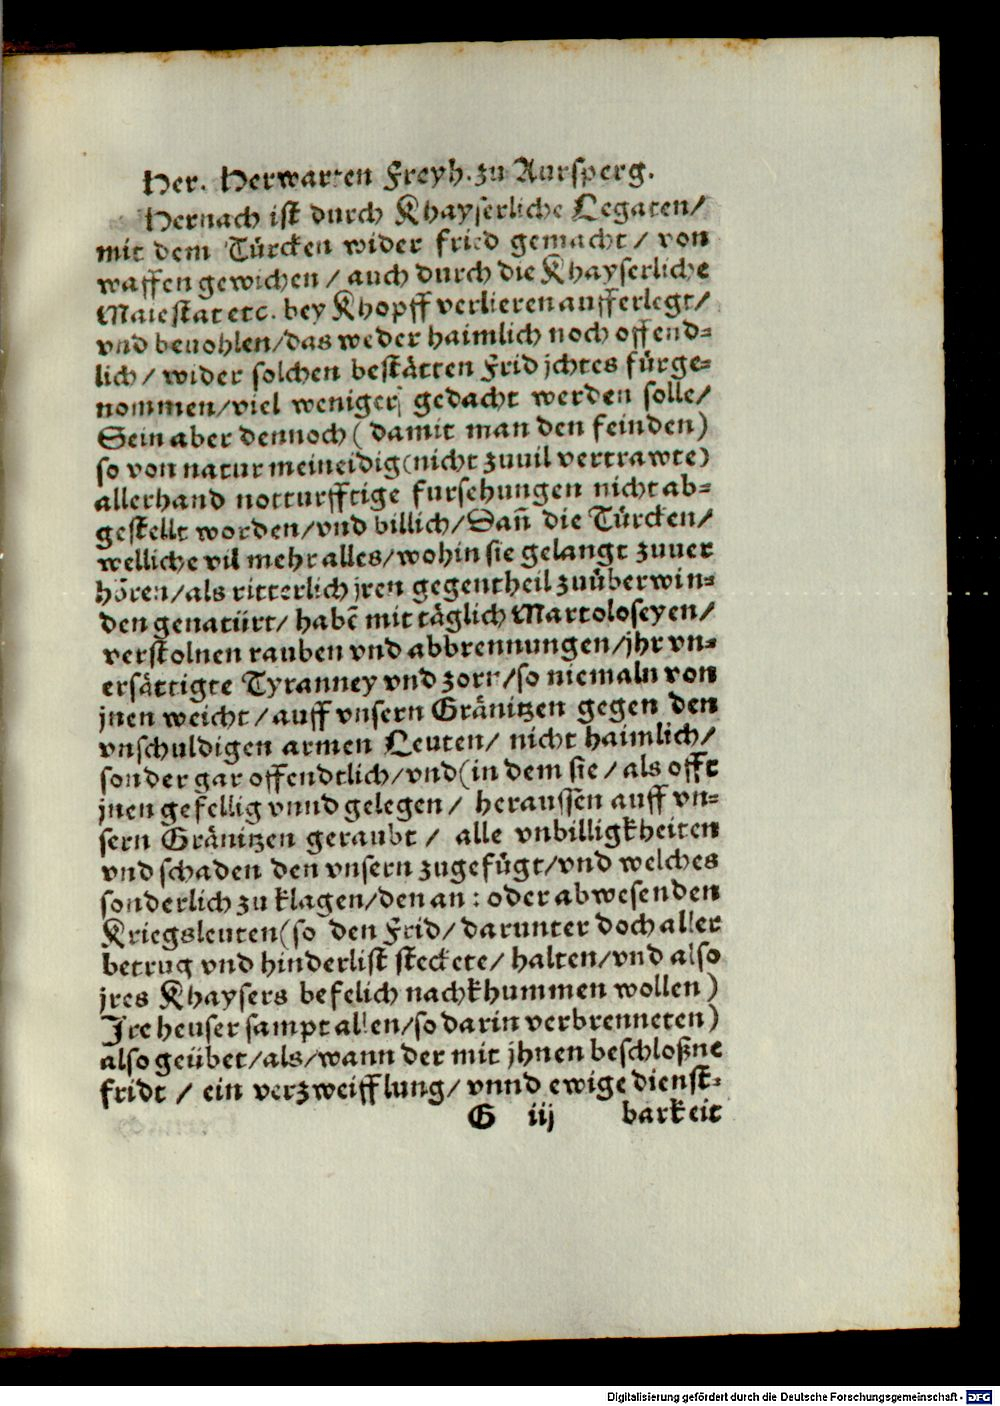 Her. Herwarten Freyh. zu Aursperg.
Hernach ist durch Khayserliche Legaten/
mit dem Türcken wider fried gemacht / von
waffen gewichen / auch durch die Khayserliche
Maiestat etc. bey Khopff verlieren aufferlegt/
vnd beuohlen/das weder haimlich noch offend-
lich / wider solchen bestätten Frid jchtes fürge-
nommen/viel weniger gedacht werden solle/
Sein aber dennoch ( damit man den feinden)
so von natur meineidig(nicht zuuil vertrawte)
allerhand notturfftige fursehungen nicht ab-
gestellt worden/vnd billich/Sañ die Türcken/
welliche vil mehr alles/wohin sie gelangt zuuer
hören/als ritterlich jren gegentheil zuüberwin-
den genatürt/ habē mit täglich Martoloseyen/
verstolnen rauben vnd abbrennungen/jhr vn-
ersättigte Tyranney vnd zorn/so niemaln von
jnen weicht / auff vnsern Gränitzen gegen den
vnschuldigen armen Leuten/ nicht haimlich/
sonder gar offendtlich/vnd(in dem sie / als offt
jnen gefellig vnnd gelegen / heraussen auff vn-
sern Gränitzen geraubt / alle vnbilligkheiten
vnd schaden den vnsern zugefügt/vnd welches
sonderlich zu klagen/den an : oder abwesenden
Kriegsleuten(so den Frid/ darunter doch aller
betrug vnd hinderlist steckete/ halten/vnd also
jres Khaysers befelich nachkhummen wollen )
Jre heuser sampt allen/so darin verbrenneten)
also geübet/als/wann der mit jhnen beschloßne
fridt / ein verzweifflung/ vnnd ewige dienst-
G iij barkeit
Digitalisierung gefördert durch die Deutsche Forschungsgemeinschaft - DFG